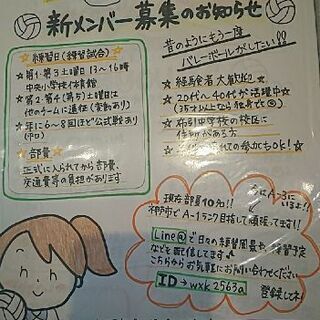 新メンバー募集のお知らせ
☆練習日(練習試合)
★第1・第3土曜日 13〜16時
中央小学校体育館
★第2・第4(第5)土曜日は
他のチームに遠征(変動あり)
★年に6〜8回ほど公式戦あり
☆部費
正式に入られてから部費、
交通費等の負担があります
昔のようにもう一度
バレーボールがしたい!!
★経験者大歓迎♪
★20代〜40代が活躍中☆
★布引中学校の校区に
ての参加もok!☆
現在部員10名!!
神戸市でA-1ランク目指して頑張ってます!!
Line@で日々の練習風景や練習予定
なども配信してます♪
こちらからお気軽にお問い合わせください
ID→wxk2563a
登録してネ!